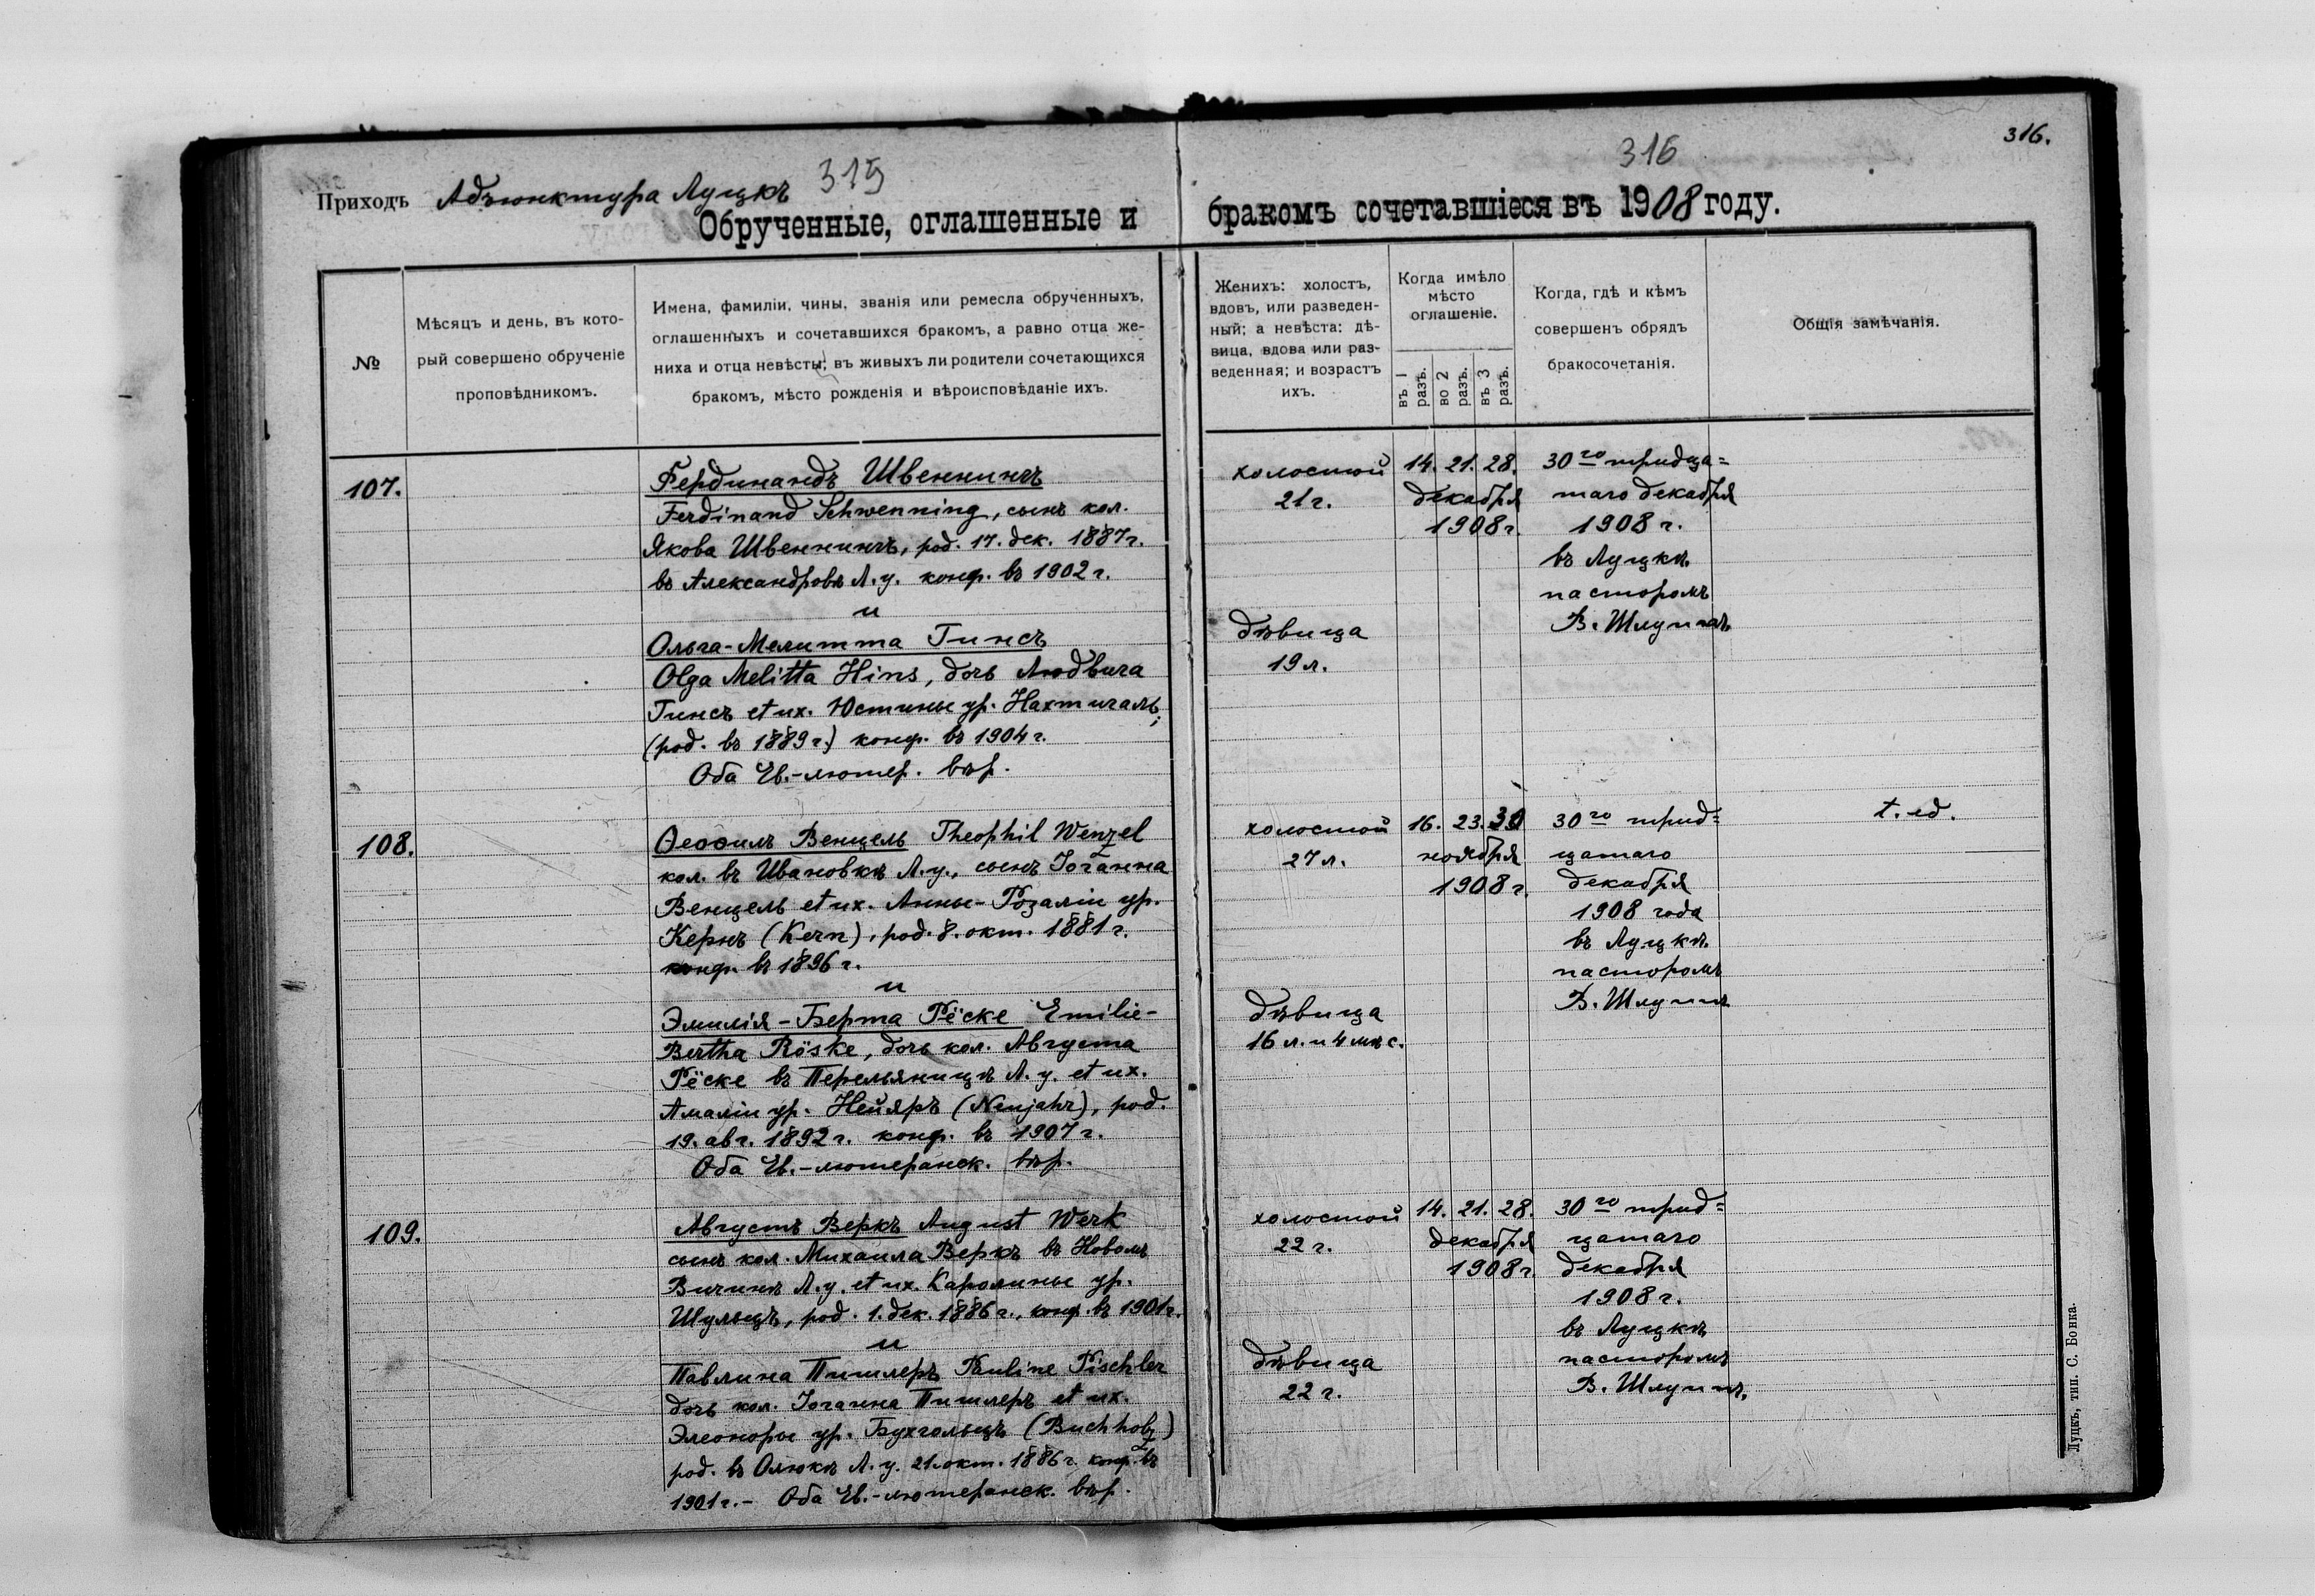 316.
319
316
Приходъ Адъюнктура Луцкъ
Обрученные, оглашенные и бракомъ сочетавшіеся въ 1908 году.
№
Мѣсяцъ и день, въ кото-
рый совершено обрученіе
проповѣдникомъ.
Имена, фамиліи, чины, званія или ремесла обрученныхъ,
оглашенныхъ и сочетавшихся бракомъ, а равно отца же-
ниха и отца невѣсты; въ живыхъ ли родители сочетающихся
бракомъ, мѣсто рожденія и вѣроисповѣданіе ихъ.
Женихъ: холостъ,
вдовъ, или разведен-
ный; а невѣста: дѣ-
вица, вдова или раз-
веденная; и возрастъ
ихъ.
Когда имѣло
мѣсто
оглашеніе.
въ 1 разъ.
во 2 разъ.
въ 3 разъ.
Когда, гдѣ и кѣмъ
совершенъ обрядъ
бракосочетанія.
Общія замѣчанія.
107.
Фердинандъ Швеннингъ
Ferdinand Schwenning, сынъ кол.
Якова Швеннингъ, род. 17. дек. 1887г.
въ Александровѣ Л.у. конф. въ 1902 г.
и
Ольга-Мелитта Гинсъ
Olga Melitta Hins, дочь Людвига
Гинсъ et ux. Юстины ур. Нахтигаль,
(род. въ 1889 г.) конф. въ 1904 г.
Оба Ев.-лютер. вѣр.
холостой
21 г.
дѣвица
19 л.
14. 21. 28.
декабря
1908 г.
30го тридца=
таго декабря
1908 г.
въ Луцкѣ
пасторомъ
В. Шлуппъ
108.
Ѳеофилъ Венцель Theophil Wenzel
кол. въ Ивановкѣ Л.у., сынъ Іоганна
Венцель et ux. Анны-Розаліи ур.
Кернъ (Kern), род. 8. окт. 1881 г.
конф. въ 1896 г.
и
Эмилія-Берта Рёске Emilie-
Bertha Röske, дочь кол. Августа
Рёске въ Перельяницѣ Л. у. et ux.
Амаліи ур. Нейяръ (Neujahr), род.
19. авг. 1892 г. конф. въ 1907 г.
Оба Ев.-лютеранск. вѣр.
холостой
27 л.
дѣвица
16 л. и 4 мѣс.
16. 23. 30
ноября
1908 г.
30го трид=
цатаго
декабря
1908 года
въ Луцкѣ
пасторомъ
В. Шлуппъ
t. ed.
109.
Августъ Веркъ August Werk
сынъ кол. Михаила Веркъ въ Новомъ
Вичинѣ Л.у. et ux. Каролины ур.
Шульцъ, род. 1. дек. 1886 г., конф. въ 1901 г.
и
Павлина Пишлеръ Pauline Pischler
дочь кол. Іоганна Пишлеръ et ux.
Элеоноры ур. Бухгольцъ (Buchholz)
род. въ Олюкѣ Л. у. 21. окт. 1886 г. конф. въ
1901 г. - Оба Ев.-лютеранск. вѣр.
холостой
22 г.
дѣвица
22 г.
14. 21. 28.
декабря
1908 г.
30го трид=
цатаго
декабря
1908 г.
въ Луцкѣ
пасторомъ
В. Шлуппъ.
Луцкъ, тип. С. Бонка.